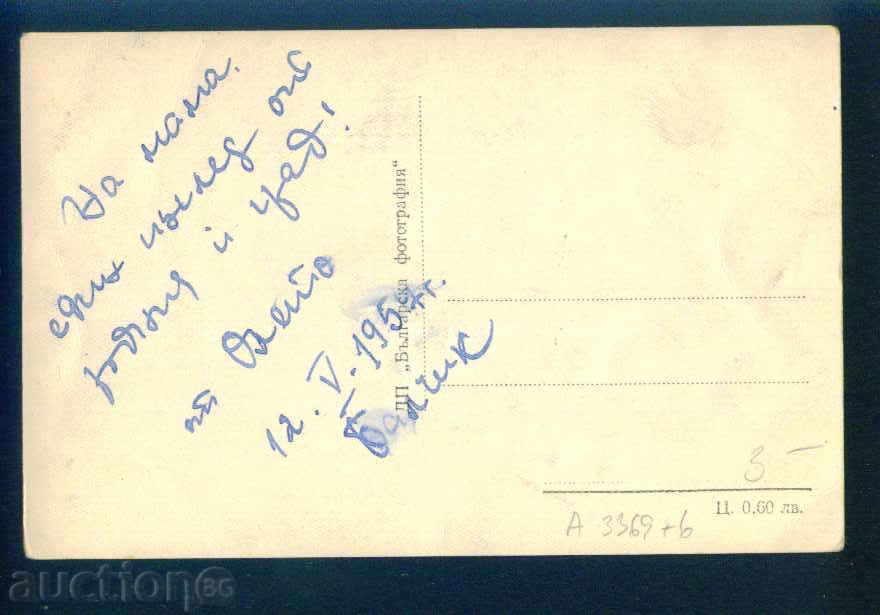 На мама.
един поглед от
родния ѝ град!
от
12. V. 195 г.
Балчик
ДП „Българска фотография“
3 –
Ц. 0,60 лв.
А 3369+6
auction BG